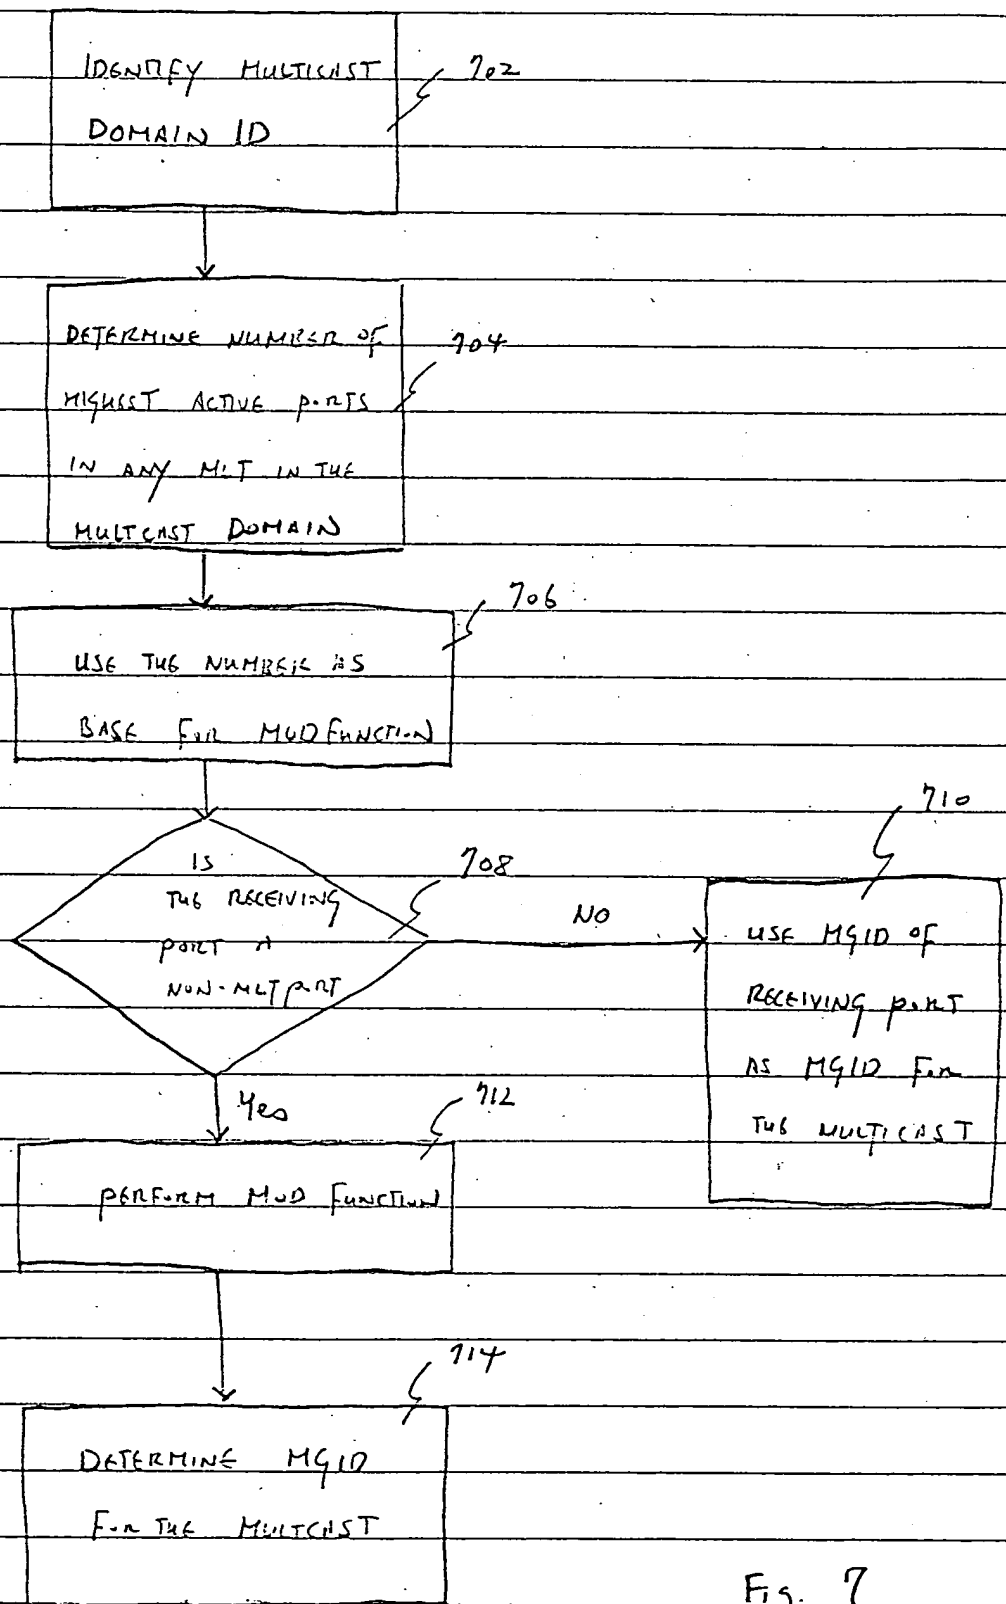 IDENTIFY MULTICAST
702
DOMAIN ID
DETERMINE NUMBER OF
704
HIGHEST ACTIVE PORTS
IN ANY MLT IN THE
MULTCAST DOMAIN
706
USE THE NUMBER AS
BASE FOR MOD FUNCTION
IS
THE RECEIVING
PORT A
NON-MLT PORT
708
NO
710
USE MGID OF
RECEIVING PORT
AS MGID FOR
THE MULTICAST
Yes
712
PERFORM MOD FUNCTION
714
DETERMINE MGID
FOR THE MULTCAST
Fig. 7